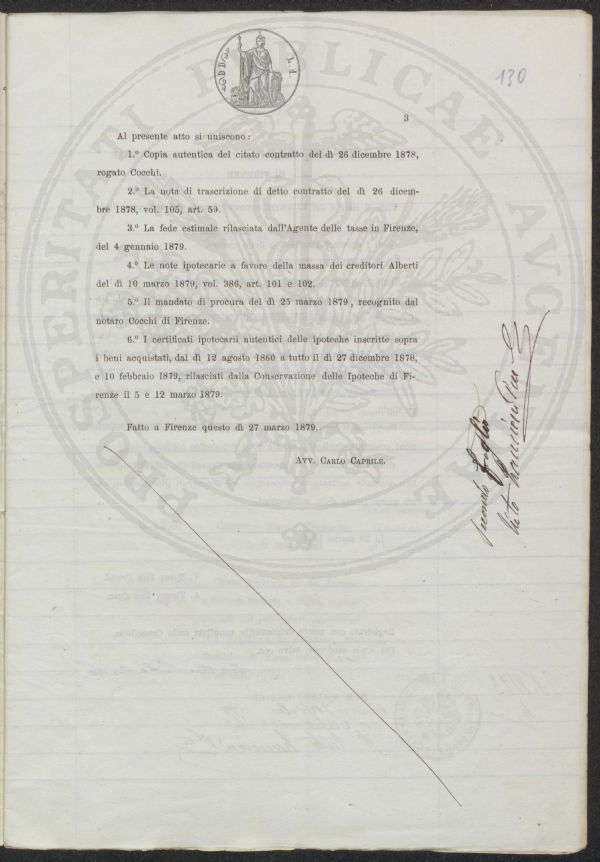 130
L. 1.
3
PROSPERITATI PUBLICAE AUGENDAE
Al presente atto si uniscono:
1.º Copia autentica del citato contratto del dì 26 dicembre 1878,
rogato Cocchi.
2.º La nota di trascrizione di detto contratto del dì 26 dicem-
bre 1878, vol. 105, art. 59.
3.º La fede estimale rilasciata dall'Agente delle tasse in Firenze,
del 4 gennaio 1879.
4.º Le note ipotecarie a favore della massa dei creditori Alberti
del dì 10 marzo 1879, vol. 386, art. 101 e 102.
5.º Il mandato di procura del dì 25 marzo 1879, recognito dal
notaro Cocchi di Firenze.
6.º I certificati ipotecarii autentici delle ipoteche inscritte sopra
i beni acquistati, dal dì 12 agosto 1860 a tutto il dì 27 dicembre 1878,
e 10 febbraio 1879, rilasciati dalla Conservazione delle Ipoteche di Fi-
renze il 5 e 12 marzo 1879.
Fatto a Firenze questo dì 27 marzo 1879.
Avv. Carlo Caprile.
secondo foglio